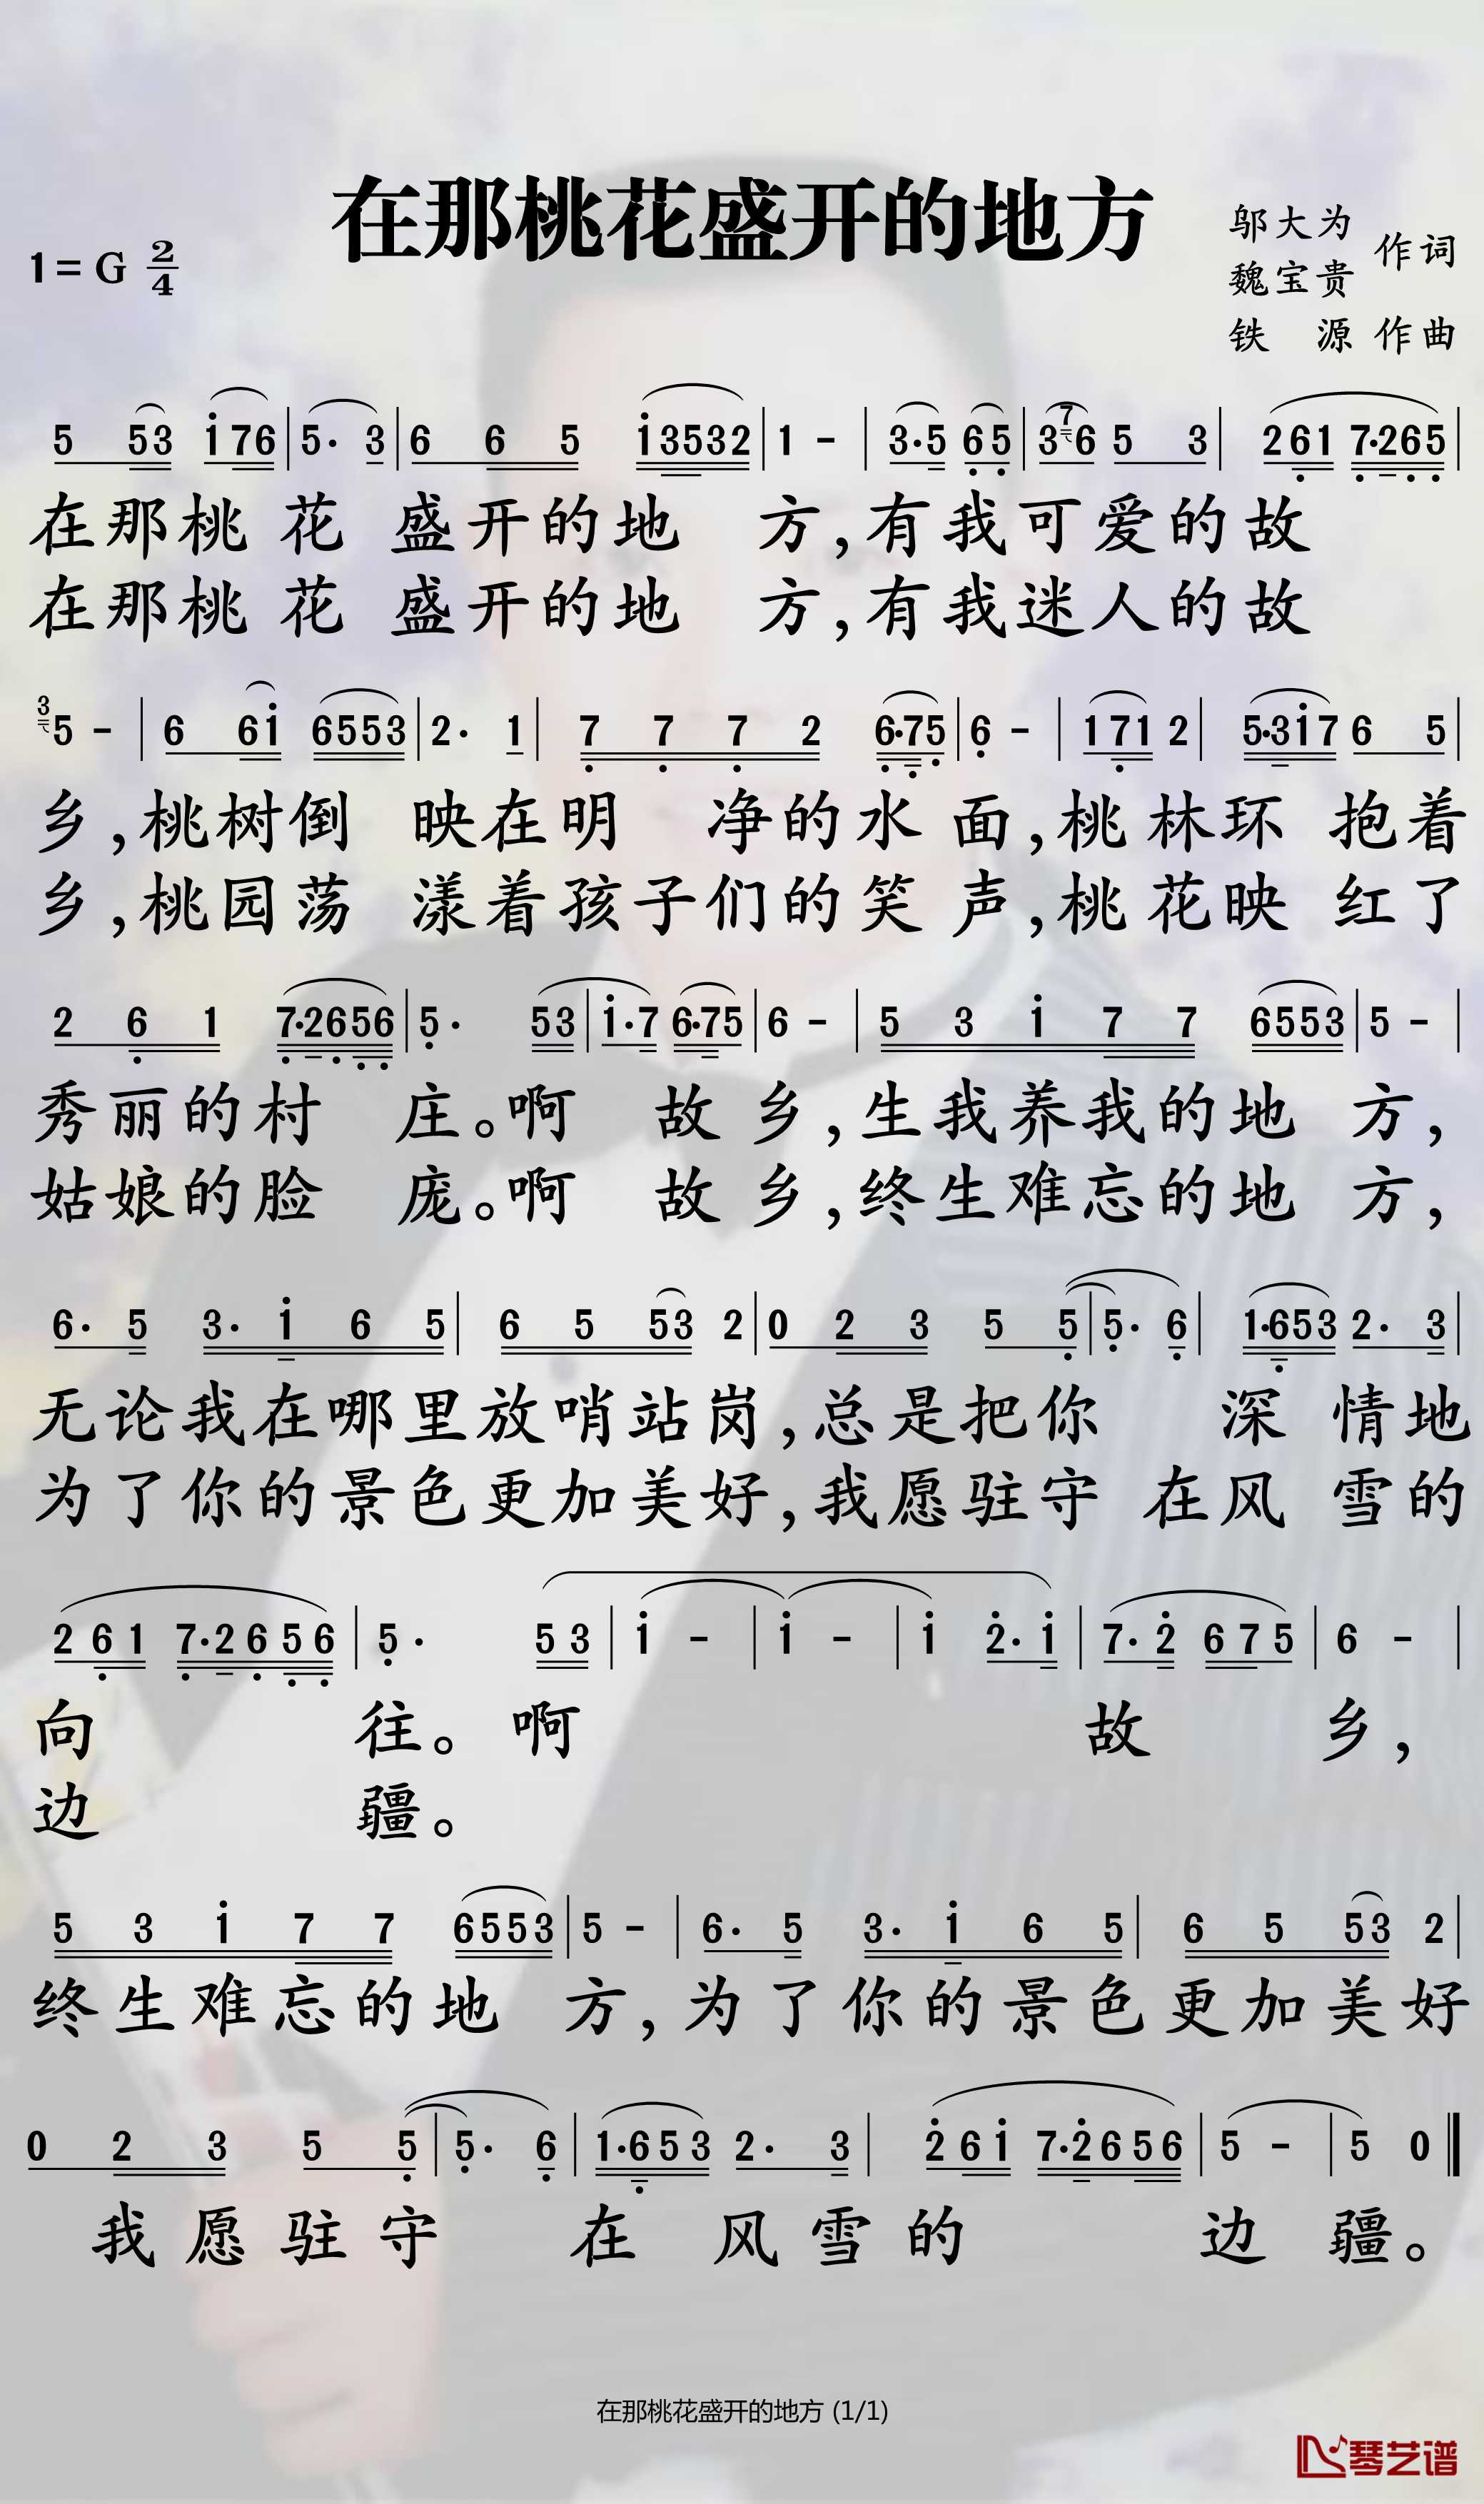 在那桃花盛开的地方
1=G 2/4
邬大为
魏宝贵 作词
铁 源 作曲
5 53 i 76 | 5· 3 | 6 6 5 i3532 | 1 - | 3·5 65 | 3 7 6 5 3 | 261 7·265 |
在那桃 花 盛开的地 方,有我可爱的故
在那桃 花 盛开的地 方,有我迷人的故
3 5 - | 6 6i 6553 | 2· 1 | 7 7 7 2 6·75 | 6 - | 171 2 | 5·3i7 6 5 |
乡,桃树倒 映在明 净的水 面,桃林环 抱着
乡,桃园荡 漾着孩子们的笑 声,桃花映 红了
2 6 1 7·2656 | 5· 53 | i·7 6·75 | 6 - | 5 3 i 7 7 6553 | 5 - |
秀丽的村 庄。啊 故 乡,生我养我的地 方,
姑娘的脸 庞。啊 故 乡,终生难忘的地 方,
6· 5 3· i 6 5 | 6 5 53 2 | 0 2 3 5 5 | 5· 6 | 1·653 2· 3 |
无论我在哪里放哨站岗,总是把你 深 情地
为了你的景色更加美好,我愿驻守 在风 雪的
2 6 1 7·2 6 5 6 | 5· 5 3 | i - | i - | i 2· i | 7· 2 6 7 5 | 6 - |
向 往。啊 故 乡,
边 疆。
5 3 i 7 7 6553 | 5 - | 6· 5 3· i 6 5 | 6 5 53 2 |
终生难忘的地 方,为了你的景色更加美好
0 2 3 5 5 | 5· 6 | 1·6 5 3 2· 3 | 2 6 i 7·2 6 5 6 | 5 - | 5 0
我愿驻守 在 风雪的 边 疆。
在那桃花盛开的地方 (1/1)
琴艺谱